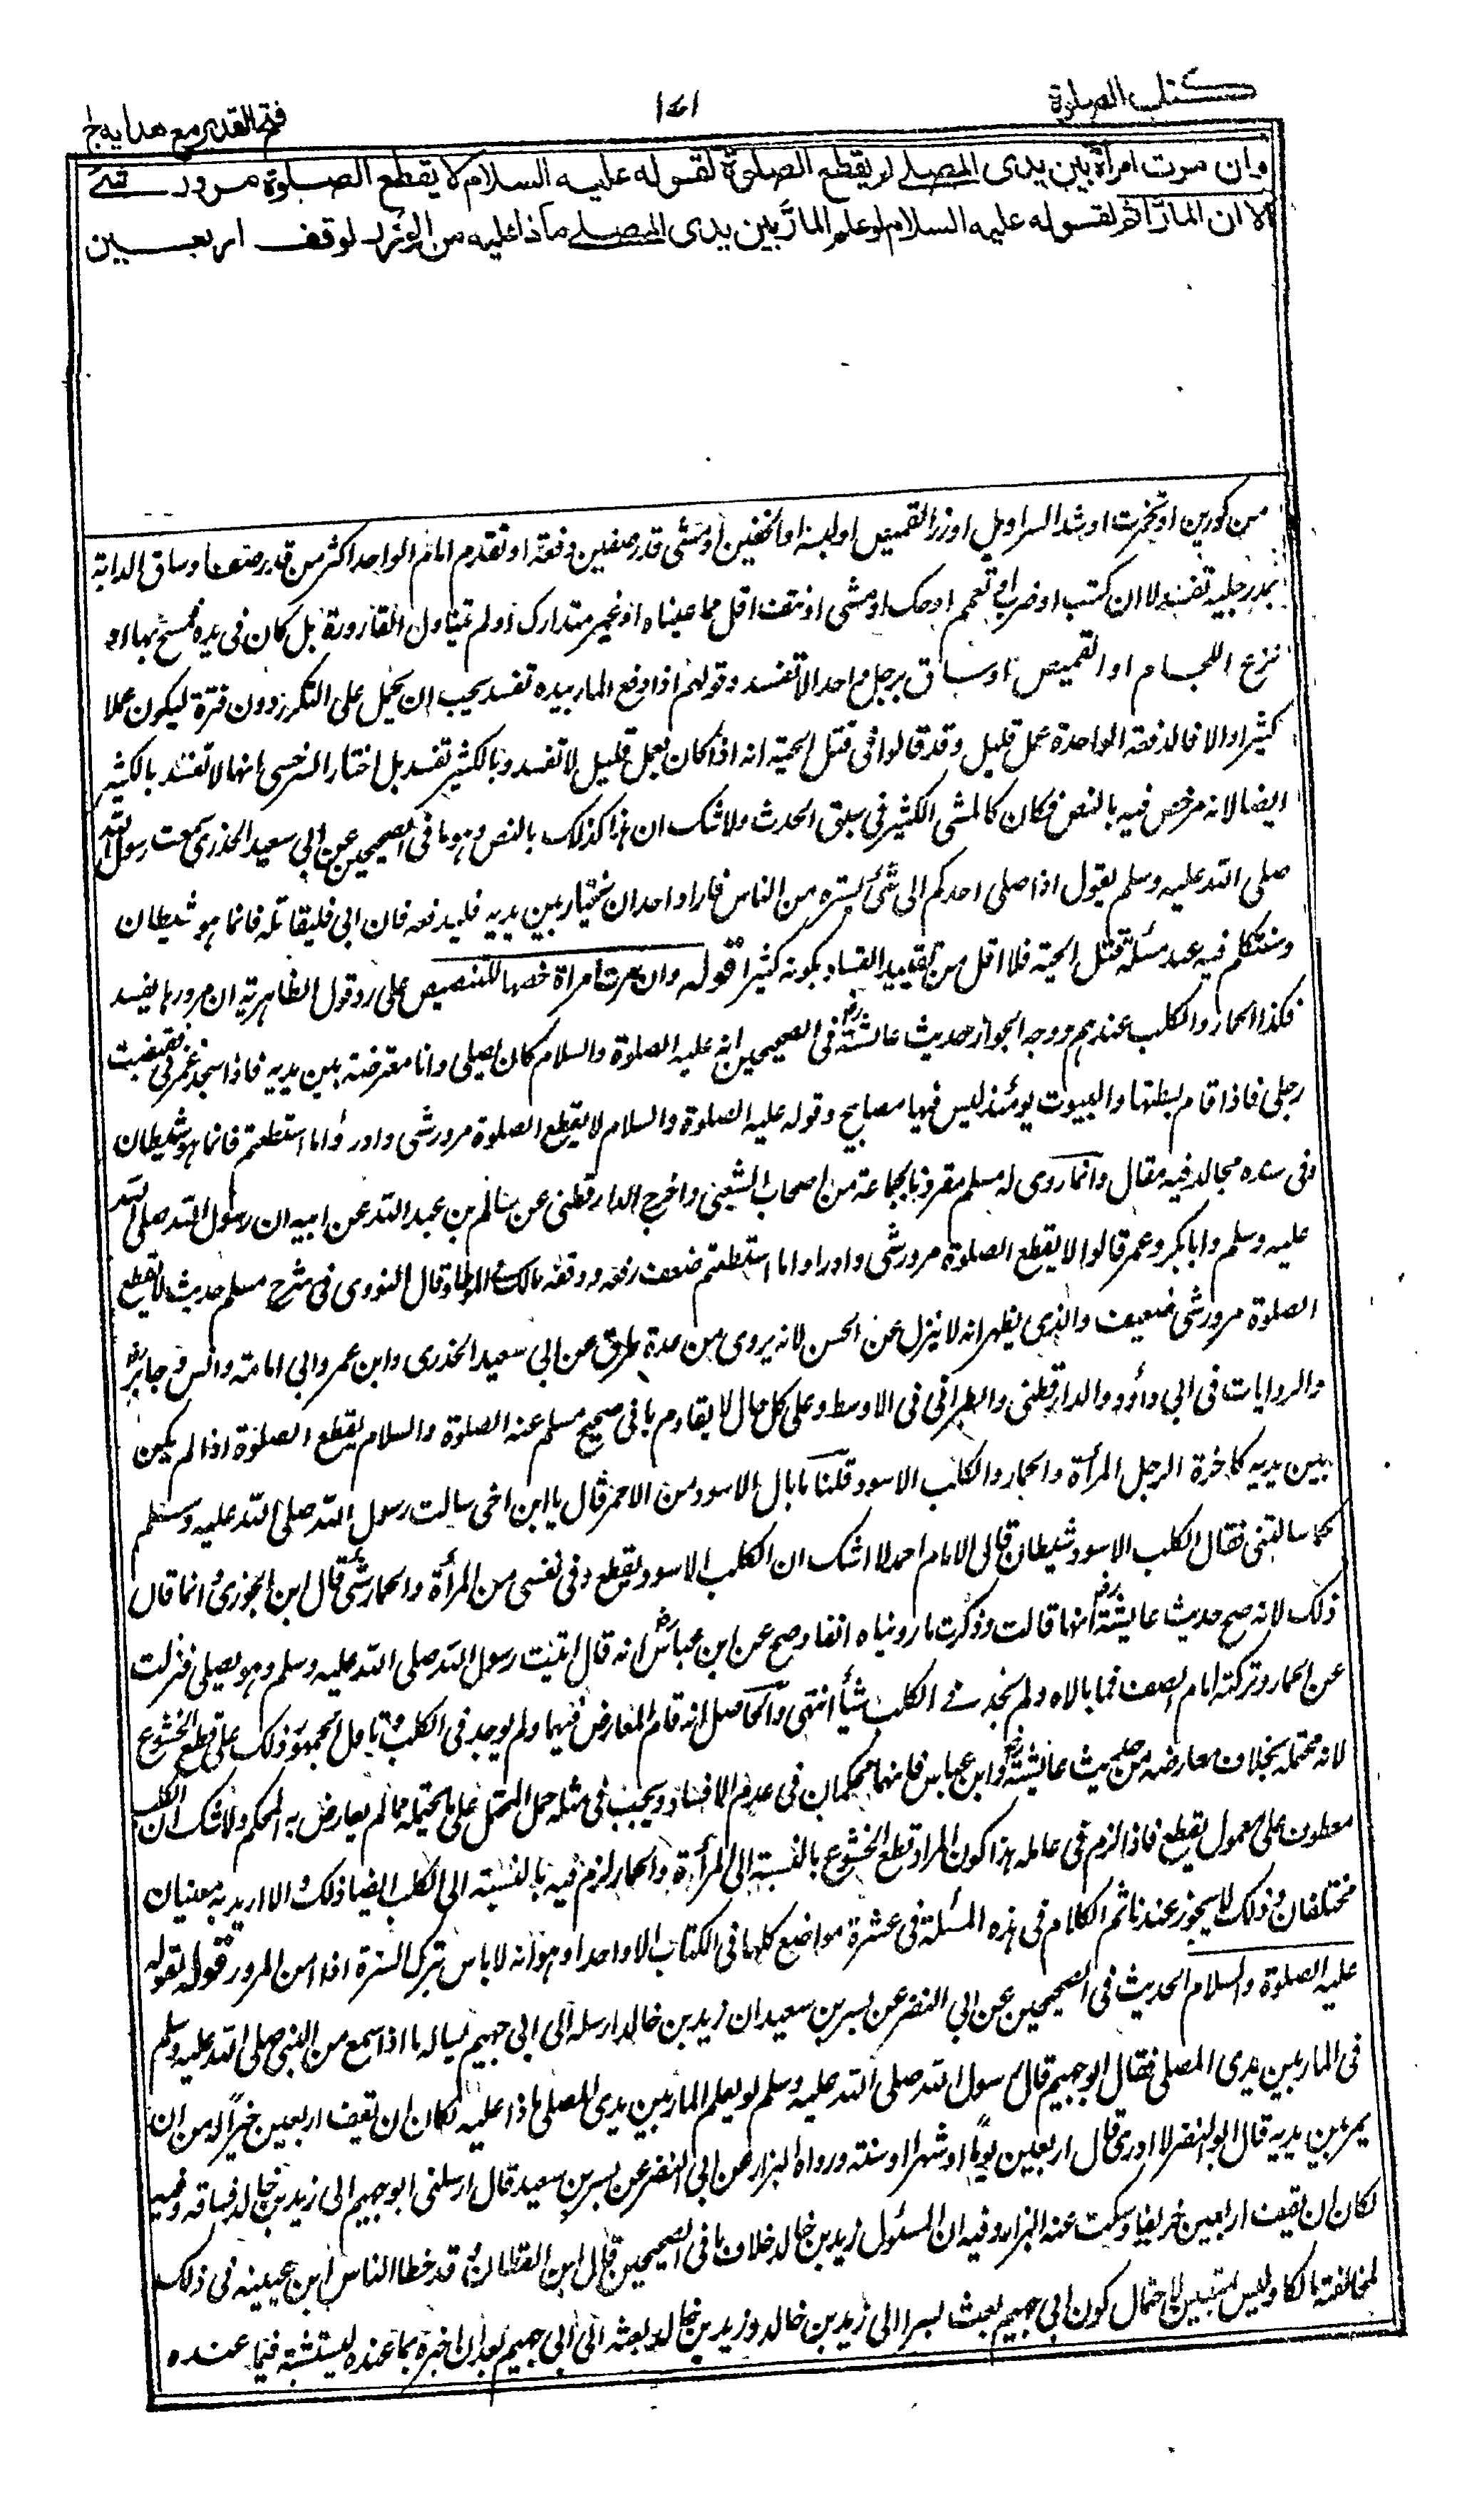 كتاب الصلوة
١٧١
فتح القدير مع هدايه ج١
وان مرت امرأة بين يدى المصلے لم يقطع الصلوة لقوله عليه السلام لا يقطع الصلوة مرور شئ
الا ان المارّ اثم لقوله عليه السلام لو علم المارّ بين يدى المصلے ماذا عليه من الوزر لوقف اربعين
من كورين او تخمرت او شد السراويل او زر القميص او لبسه او الخفين او مشى قدر صفين دفعة او تقدم امام الواحد اكثر من قدر صف او ساق الدابة
بمد رجليه تفسد لا ان كتب او ضرب او تعمم او حك او مشى او نتف اقل مما عيناه او غير متدارك او لم يتناول القارورة بل كان فى يده فمسح بها او
نزع اللجام او القميص او ساق برجل واحد لا تفسد وقولهم اذا دفع المار بيده تفسد يجب ان يحمل على التكرر دون فترة ليكون عملا
كثيرا والا فالدفعة الواحدة عمل قليل وقد قالوا فى قتل الحية انه اذا كان بعمل قليل لا تفسد وبالكثير تفسد بل اختار السرخسى انها لا تفسد بالكثير
ايضا لانه مرخص فيه بالنص فكان كالمشى الكثير فى سبق الحدث ولا شك ان هذا كذلك بالنص وهو ما فى الصحيحين عن ابى سعيد الخدرى سمعت رسول الله
صلى الله عليه وسلم يقول اذا صلى احدكم الى شئ يستره من الناس فاراد احد ان يجتاز بين يديه فليدفعه فان ابى فليقاتله فانما هو شيطان
وسنتكلم فيه عند مسئلة قتل الحية فلا اقل من تقييد الفساد بكونه كثيرا قوله وان مرت امراة خصها للتنصيص على رد قول الظاهرية ان مرورها يفسد
فكذا الحمار والكلب عندهم ووجه الجواز حديث عائشة رض فى الصحيحين انه عليه الصلوة والسلام كان يصلى وانا معترضة بين يديه فاذا سجد غمزنى فقبضت
رجلى فاذا قام بسطتها والبيوت يومئذ ليس فيها مصابيح وقوله عليه الصلوة والسلام لا يقطع الصلوة مرور شئ وادرؤا ما استطعتم فانما هو شيطان
وفى سنده مجالد فيه مقال وانما روى له مسلم مقرونا بجماعة من اصحاب الشعبى واخرج الدارقطنى عن سالم بن عبد الله عن ابيه ان رسول الله صلى الله
عليه وسلم وابا بكر وعمر قالوا لا يقطع الصلوة مرور شئ وادراوا ما استطعتم ضعف رفعه ووقفه مالك فى الموطا وقال النووى فى شرح مسلم حديث لا يقطع
الصلوة مرور شئ ضعيف والذى يظهر انه لا ينزل عن الحسن لانه يروى من عدة طرق عن ابى سعيد الخدرى وابن عمر وابى امامة وانس وجابر رض
والروايات فى ابى داؤد والدارقطنى والطبرانى فى الاوسط وعلى كل حال لا يقاوم ما فى صحيح مسلم عنه الصلوة والسلام يقطع الصلوة اذا لم يكن
بين يديه كاخرة الرحل المرأة والحمار والكلب الاسود قلنا ما بال الاسود من الاحمر قال يا ابن اخى سالت رسول الله صلى الله عليه وسلم
كما سالتنى فقال الكلب الاسود شيطان قال الامام احمد لا اشك ان الكلب الاسود يقطع وفى نفسى من المرأة والحمار شئ قال ابن الجوزى وانما قال
ذلك لانه صح حديث عايشة رض انها قالت وذكرت ما رويناه انفا وصح عن ابن عباس رض انه قال اتيت رسول الله صلى الله عليه وسلم وهو يصلى فنزلت
عن الحمار وتركته امام الصف فما بالاه ولم نجد فى الكلب شيأ انتهى والحاصل انه قام المعارض فيهما ولم يوجد فى الكلب وتاول الجمهور ذلك على قطع الخشوع
لانه محتمله بخلاف معارضه من حديث عائشة رض وابن عباس فانهما محكمان فى عدم الافساد ويجب فى مثله حمل المحتمل على ما يحتمله مما لم يعارض به المحكم ولا شك ان الكلب
معطوف على معمول يقطع فاذا لزم فى عامله هذا كون المراد قطع الخشوع بالنسبة الى المرأة والحمار لزم فيه بالنسبة الى الكلب ايضا ذلك والا اريد به معنيان
مختلفان وذلك لا يجوز عندنا ثم الكلام فى هذه المسئلة فى عشرة مواضع كلها فى الكتاب الا واحدا وهو انه لا باس بترك السترة اذا امن المرور قوله لقوله
عليه الصلوة والسلام الحديث فى الصحيحين عن ابى النضر عن بسر بن سعيد ان زيد بن خالد ارسله الى ابى جهيم يساله ما اذا سمع من النبى صلى الله عليه وسلم
فى المار بين يدى المصلى فقال ابو جهيم قال رسول الله صلى الله عليه وسلم لو يعلم المار بين يدى المصلى ماذا عليه لكان ان يقف اربعين خيرًا له من ان
يمر بين يديه قال ابو النضر لا ادرى قال اربعين يومًا او شهرا او سنة ورواه البزار عن ابى النضر عن بسر بن سعيد قال ارسلنى ابو جهيم الى زيد بن خالد فساقه وفيه
لكان ان يقف اربعين خريفا وسكت عنه البزار وفيه ان المسئول زيد بن خالد خلاف ما فى الصحيحين قال ابن القطان وقد خطا الناس ابن عيينه فى ذلك
لمخالفته مالكا وليس بمتعين لاحتمال كون ابى جهيم بعث بسرا الى زيد بن خالد وزيد بن خالد بعثه الى ابى جهيم بعد ان اخبره بما عنده ليستثبته فيما عنده